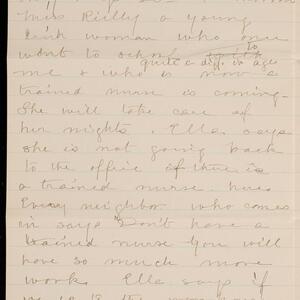 Miss Reilly a young
Irish woman who once
went to school to
quite a diff. in ages
me & who is now a
trained nurse is coming.
She will take care of
her nights. Ella says
she is not going back
to the office if there is
a trained nurse here
Every neighbor who comes
in says "Don't have a
trained nurse you will
have so much more
work. Ella says if